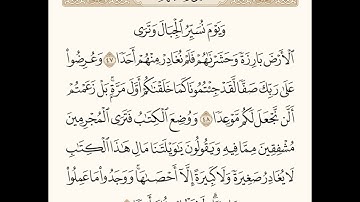 وَيَوْمَ نُسَيِّرُ ٱلْجِبَالَ وَتَرَى
ٱلْأَرْضَ بَارِزَةً وَحَشَرْنَٰهُمْ فَلَمْ نُغَادِرْ مِنْهُمْ أَحَدًا ٤٧ وَعُرِضُوا۟
عَلَىٰ رَبِّكَ صَفًّا لَّقَدْ جِئْتُمُونَا كَمَا خَلَقْنَٰكُمْ أَوَّلَ مَرَّةٍۭ ۚ بَلْ زَعَمْتُمْ
أَلَّن نَّجْعَلَ لَكُم مَّوْعِدًا ٤٨ وَوُضِعَ ٱلْكِتَٰبُ فَتَرَى ٱلْمُجْرِمِينَ
مُشْفِقِينَ مِمَّا فِيهِ وَيَقُولُونَ يَٰوَيْلَتَنَا مَالِ هَٰذَا ٱلْكِتَٰبِ
لَا يُغَادِرُ صَغِيرَةً وَلَا كَبِيرَةً إِلَّآ أَحْصَىٰهَا ۚ وَوَجَدُوا۟ مَا عَمِلُوا۟